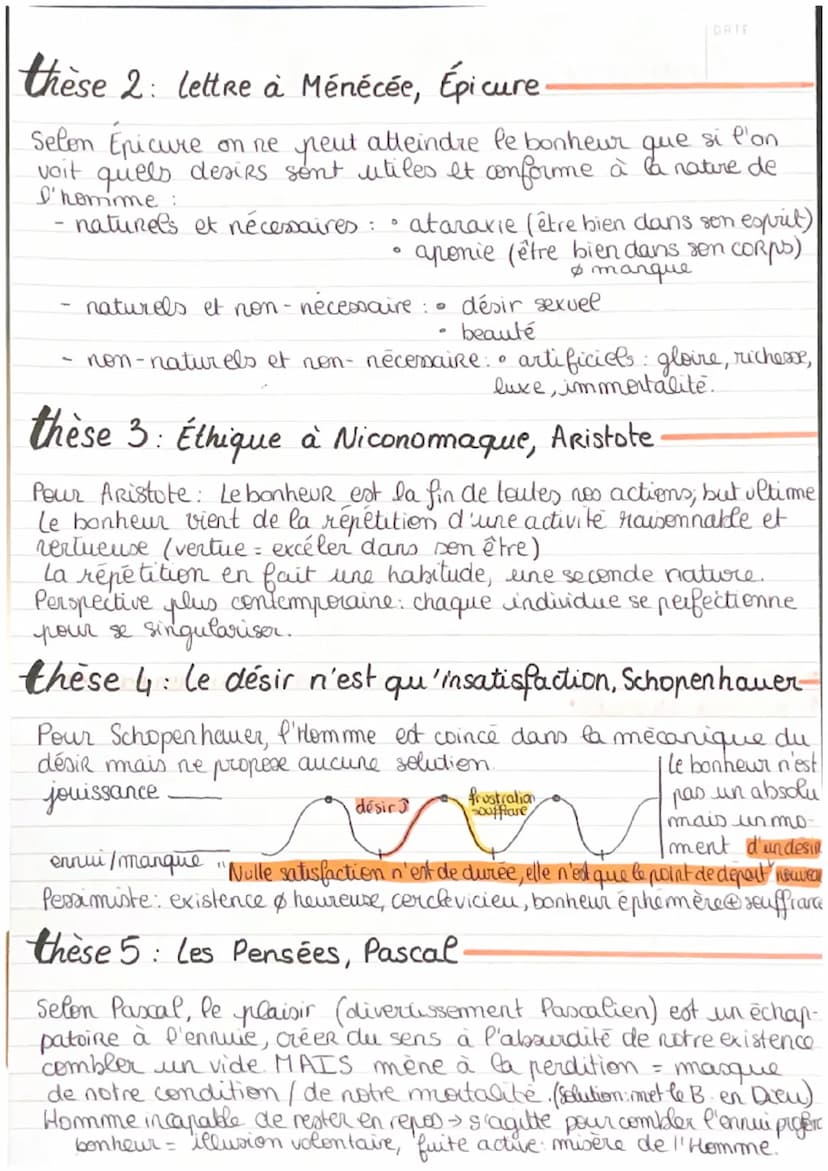 DATE
thèse 2 : lettre à Ménécée, Épicure
Selon Épicure on ne peut atteindre le bonheur que si l'on
voit quels desirs sont utiles et conforme à la nature de
l'homme :
- naturels et nécessaires : • ataraxie (être bien dans son esprit)
• aponie (être bien dans son corps)
ø manque
- naturels et non-nécessaire : • désir sexuel
• beauté
- non-naturels et non-nécessaire : • artificiels : gloire, richesse,
luxe, immortalité.
thèse 3 : Éthique à Niconomaque, Aristote
Pour Aristote : Le bonheur est la fin de toutes nos actions, but ultime
Le bonheur vient de la répétition d'une activité raisonnable et
vertueuse (vertue = excéler dans son être)
La répétition en fait une habitude, une seconde nature.
Perspective plus contemporaine : chaque individue se perfectionne
pour se singulariser.
thèse 4 : Le désir n'est qu'insatisfaction, Schopenhauer
Pour Schopenhauer, l'Homme est coincé dans la mécanique du
désir mais ne propose aucune solution.
jouissance
désir
frustration
souffrance
ennui/manque
Le bonheur n'est
pas un absolu
mais un mo-
ment d'un désir
"Nulle satisfaction n'est de durée, elle n'est que le point de départ" nouveau
Pessimiste : existence ø heureuse, cercle vicieu, bonheur éphémère ⊕ souffrance
thèse 5 : Les Pensées, Pascal
Selon Pascal, le plaisir (divertissement Pascalien) est un échap-
patoire à l'ennuie, créer du sens à l'absurdité de notre existence
combler un vide. MAIS mène à la perdition = masque
de notre condition / de notre mortalité. (Solution : met le B. en Dieu)
Homme incapable de rester en repos → s'agitte pour combler l'ennui
bonheur = illusion volontaire, fuite active : misère de l'Homme.